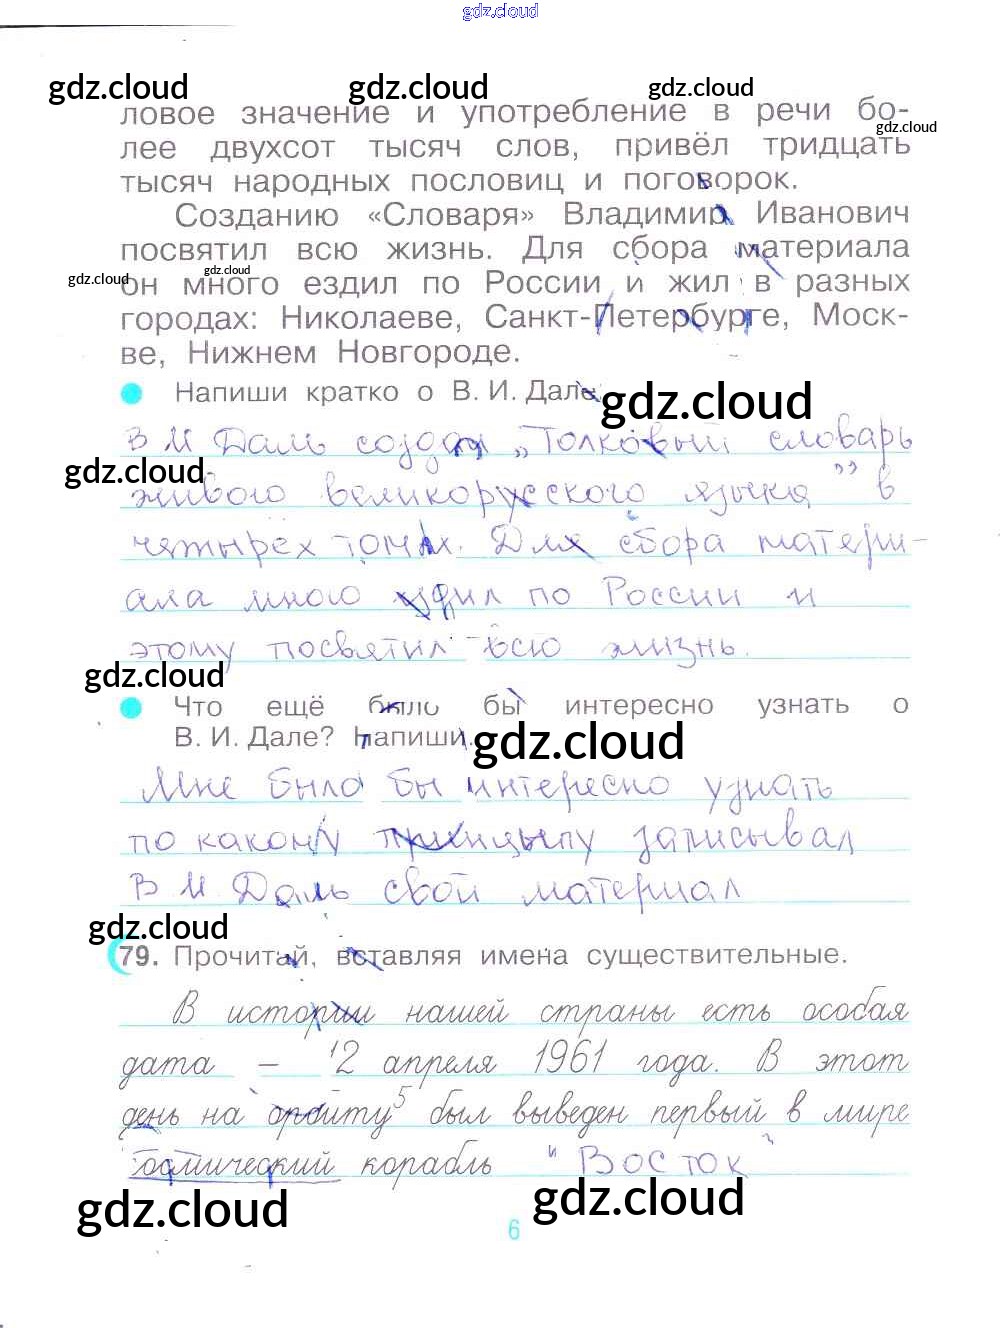 gdz.cloud
gdz.cloud gdz.cloud gdz.cloud
ловое значение и употребление в речи бо-
gdz.cloud
лее двухсот тысяч слов, привёл тридцать
тысяч народных пословиц и поговорок.
Созданию «Словаря» Владимир Иванович
посвятил всю жизнь. Для сбора материала
gdz.cloud gdz.cloud
он много ездил по России и жил в разных
городах: Николаеве, Санкт-Петербурге, Моск-
ве, Нижнем Новгороде.
Напиши кратко о В. И. Дале.
gdz.cloud
В И Даль создал „Толковый словарь
gdz.cloud
живого великорусского языка" в
четырёх томах. Для сбора матери-
ала много ездил по России и
этому посвятил всю жизнь.
gdz.cloud
Что ещё было бы интересно узнать о
В. И. Дале? Напиши.
gdz.cloud
Мне было бы интересно узнать
по какому принцыпу записывал
В И Даль свой материал
gdz.cloud
79. Прочитай, вставляя имена существительные.
В истории нашей страны есть особая
дата — 12 апреля 1961 года. В этот
день на орбиту⁵ был выведен первый в мире
космический корабль "Восток"
gdz.cloud gdz.cloud
6